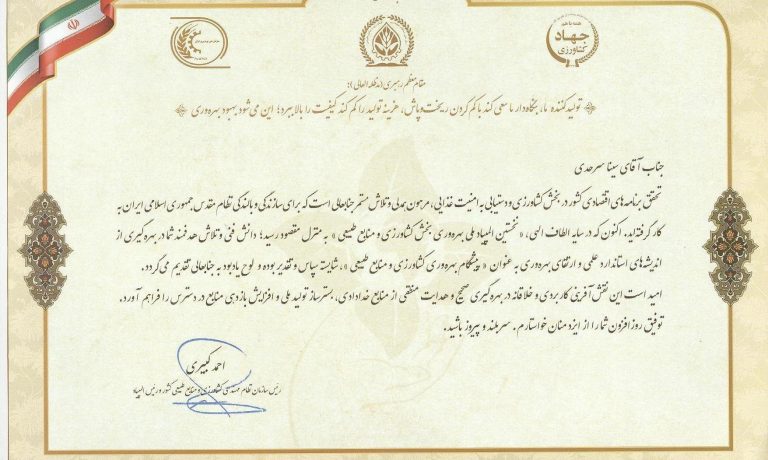 همه با هم
جهاد
کشاورزی
مقام معظم رهبری (مدظله العالی):
تولیدکننده ما، بنگاه‌دار ما سعی کند با کم کردن ریخت و پاش، هزینه تولید را کم کند کیفیت را بالا ببرد؛ این می‌شود بهبود بهره‌وری
جناب آقای سینا سرحدی
تحقق برنامه‌های اقتصادی کشور در بخش کشاورزی و دستیابی به امنیت غذایی، مرهون همدلی و تلاش مستمر جنابعالی است که برای سازندگی و بالندگی نظام مقدس جمهوری اسلامی ایران به
کار گرفته‌اید. اکنون که در سایه الطاف الهی، «نخستین المپیاد ملی بهره‌وری بخش کشاورزی و منابع طبیعی» به منزل مقصود رسید؛ دانش فنی و تلاش هدفمند شما در بهره‌گیری از
اندیشه‌های استاندارد علمی و ارتقای بهره‌وری به عنوان «پیشگام بهره‌وری کشاورزی و منابع طبیعی»، شایسته سپاس و تقدیر بوده و لوح یادبود به جنابعالی تقدیم می‌گردد.
امید است این نقش‌آفرینی کاربردی و خلاقانه در بهره‌گیری صحیح و هدایت منطقی از منابع خدادادی، بسترساز تولید ملی و افزایش بازدهی منابع در دسترس را فراهم آورد.
توفیق روزافزون شما را از ایزد منان خواستارم. سربلند و پیروز باشید.
احمد کبیری
رئیس سازمان نظام مهندسی کشاورزی و منابع طبیعی کشور و رئیس المپیاد